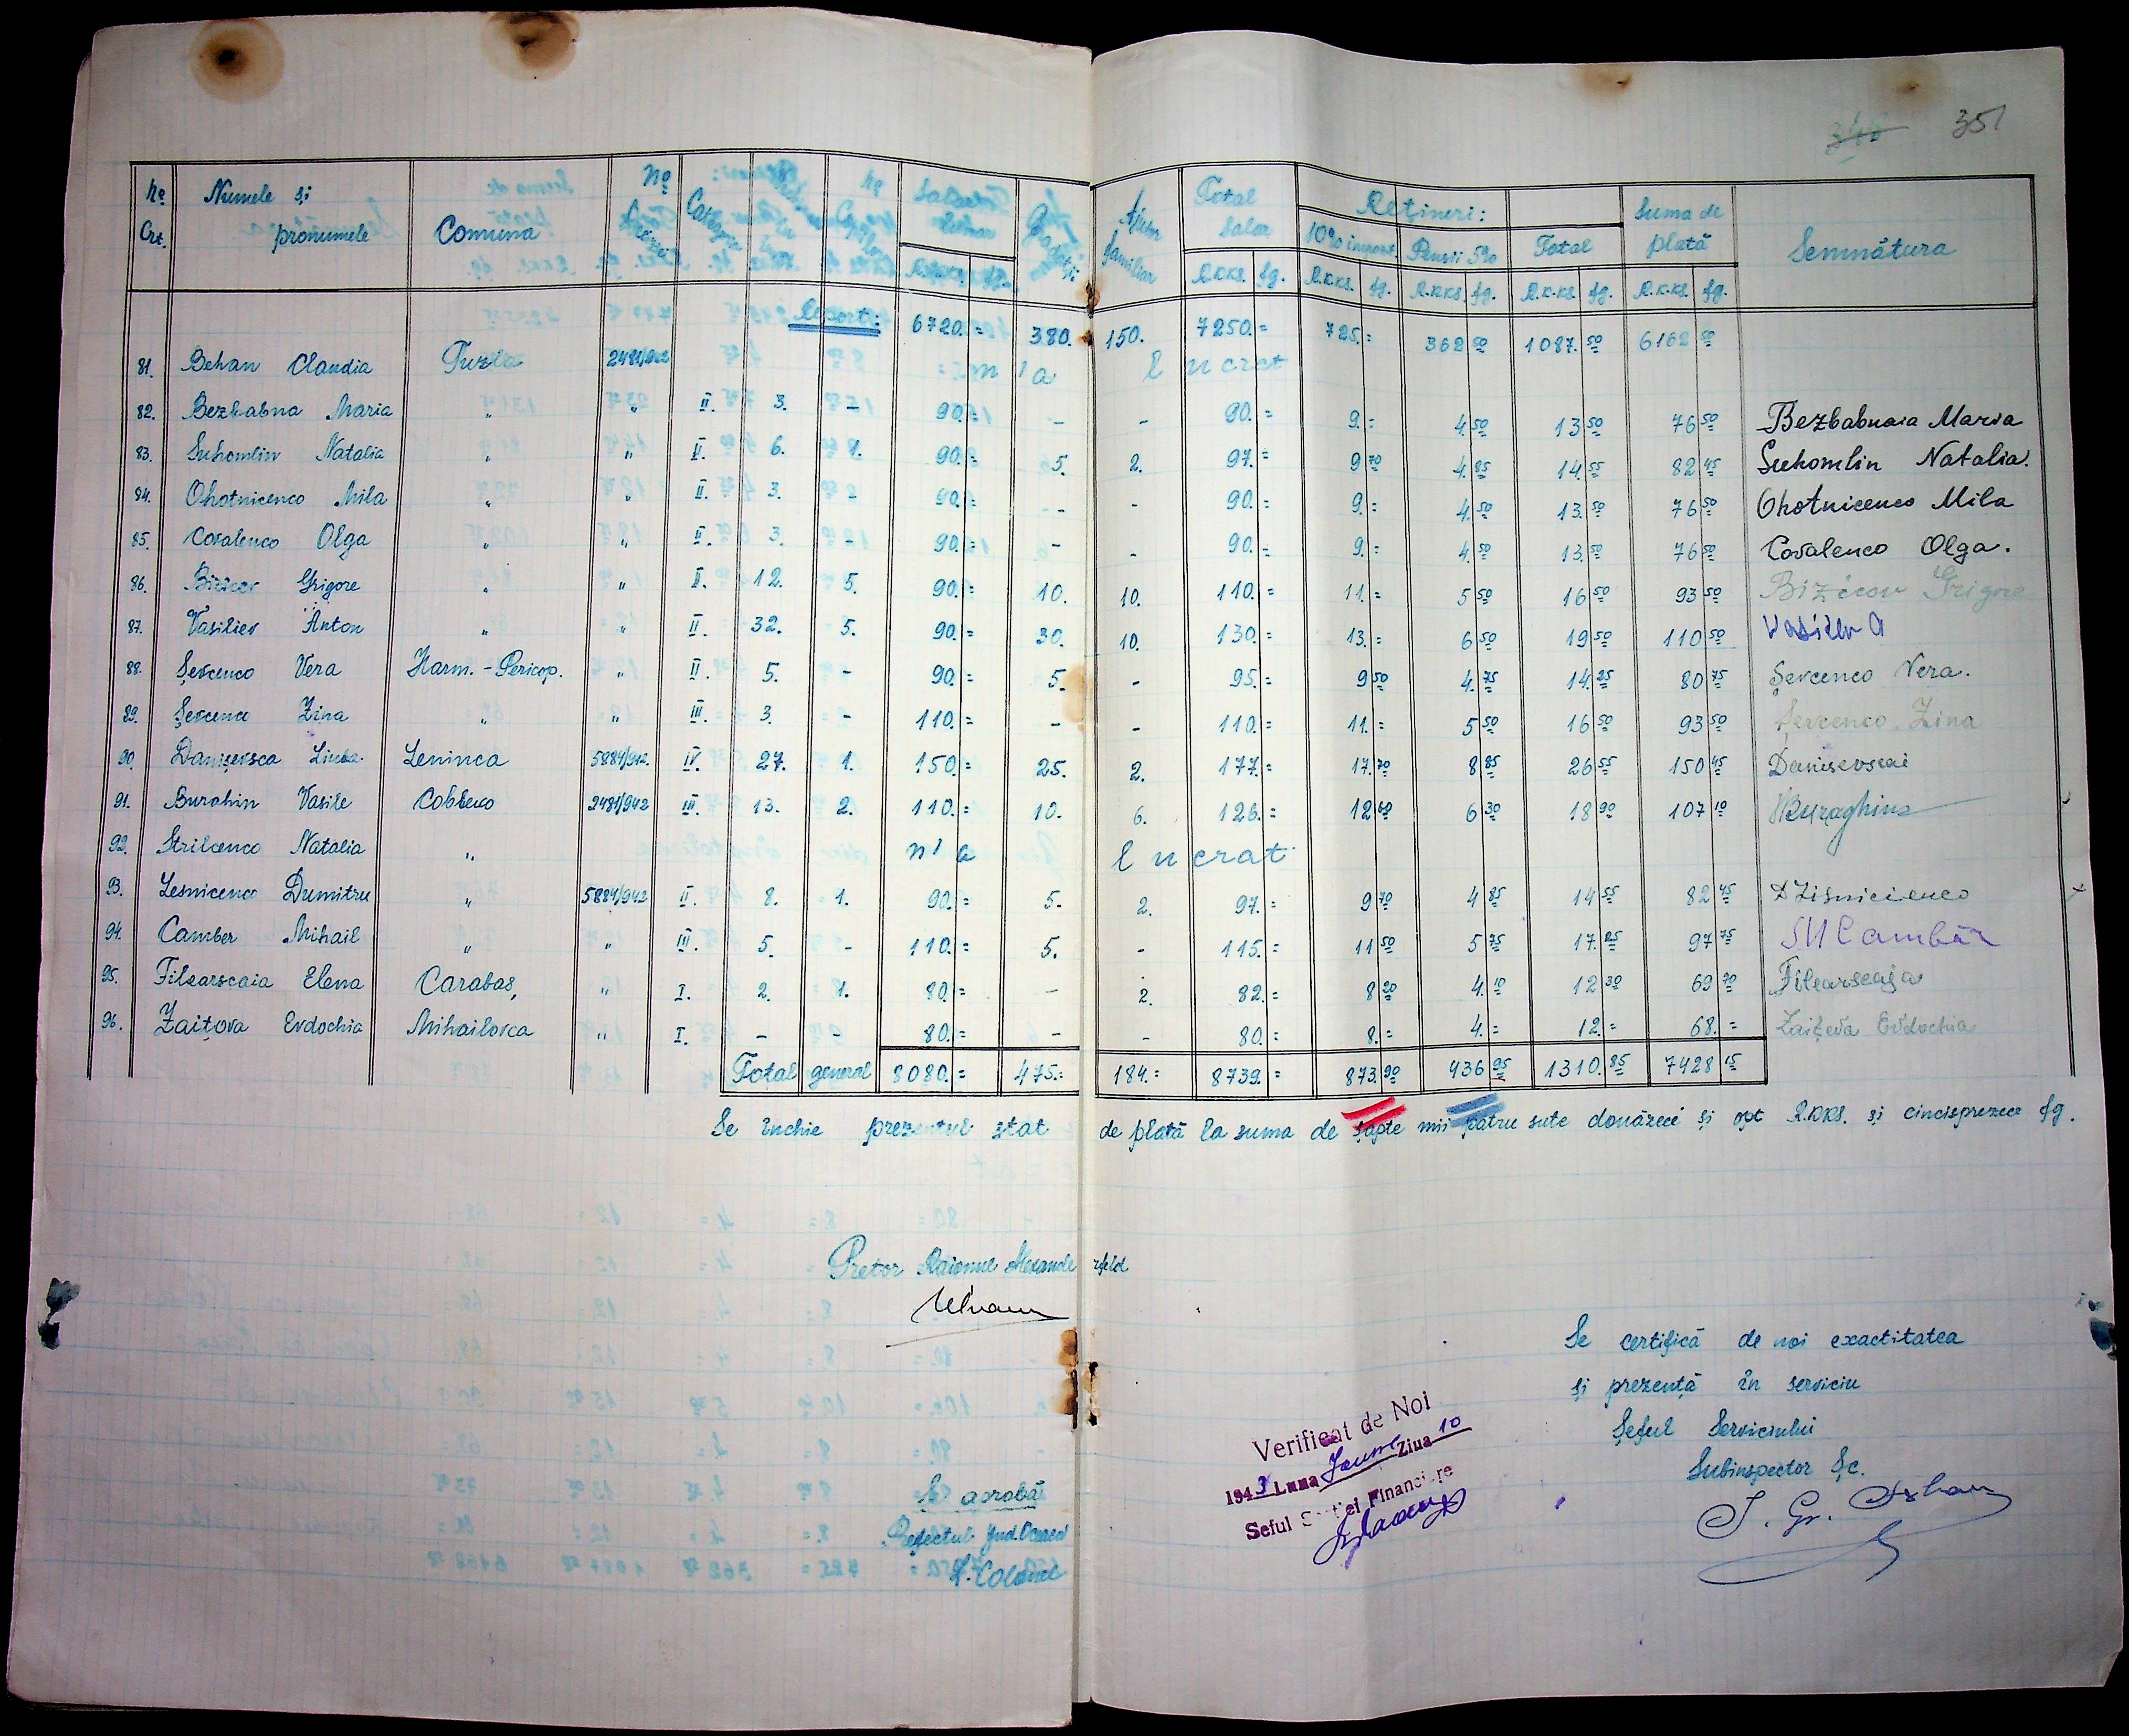 351
Nº Crt. Numele și pronumele Comuna Nº Categoria Salariu Gradații Ajutor familiar Total salar Rețineri: Suma de plată Semnătura
10% impozit Pensii 5% Total
R.KKS. fg. R.KKS. fg. R.KKS. fg. R.K.KS. fg. R.K.KS. fg.
Report: 6720.= 380. 150. 7250.= 725.= 362 50 1087. 50 6162 50
81. Behan Claudia Tuzla 2481/942 n'a lucrat
82. Bezbabna Maria " " II. 3. - 90.= - - 90.= 9.= 4.50 13 50 76 50 Bezbabnaia Maria
83. Suhomlin Natalia " " II. 6. 1. 90.= 5. 2. 97.= 9 70 4.85 14.55 82 45 Suhomlin Natalia.
84. Ohotnicenco Mila " " II. 3. - 90.= - - 90.= 9.= 4.50 13.50 76 50 Ohotnicenco Mila
85. Covalenco Olga " " II. 3. - 90.= - - 90.= 9.= 4.50 13.50 76 50 Covalenco Olga.
86. Bizicov Grigore " " II. 12. 5. 90.= 10. 10. 110.= 11.= 5 50 16 50 93 50 Bizicov Grigore
87. Vasiliev Anton " " II. 32. 5. 90.= 30. 10. 130.= 13.= 6 50 19 50 110 50 Vasilev A
88. Șevcenco Vera Harm.-Pericop. " II. 5. - 90.= 5. - 95.= 9 50 4.75 14.25 80 75 Șevcenco Vera.
89. Șevcenco Zina " " III. 3. - 110.= - - 110.= 11.= 5 50 16 50 93 50 Șevcenco Zina
90. Danișevsca Liuba Leninca 5884/942 IV. 27. 1. 150.= 25. 2. 177.= 17.70 8 85 26 55 150 45 Danisevscai
91. Burahin Vasile Cobleco 2481/942 III. 13. 2. 110.= 10. 6. 126.= 12 60 6 30 18 90 107 10 Buraghin
92. Strilcenco Natalia " n'a lucrat
93. Lesnicenco Dumitru " 5884/942 II. 8. 1. 90.= 5. 2. 97.= 9 70 4 85 14 55 82 45 D Lisnicienco
94. Camber Mihail " " III. 5. - 110.= 5. - 115.= 11 50 5 75 17.25 97 75 M Cambăr
95. Filearscaia Elena Carabaș " I. 2. 1. 80.= - 2. 82.= 8 20 4.10 12 30 69 70 Filearscaja
96. Zaițova Evdochia Mihailovca " I. - - 80.= - - 80.= 8.= 4.= 12.= 68.= Zaițeva Evdochia
Total general 8080.= 475.= 184.= 8739.= 873.90 436 95 1310.85 7428 15
Se închie prezentul stat de plată la suma de șapte mii patru sute douăzeci și opt R.KKS. și cincisprezece fg.
Pretor Raionul Alexanderfeld
Se certifică de noi exactitatea
și prezență în serviciu
Șeful Serviciului
Subinspector Șc.
Verificat de Noi
1943 Luna Iunie Ziua 10
Seful Secției Financiare
Se aprobă
Prefectul Jud. Oceacov
Lt. Colonel